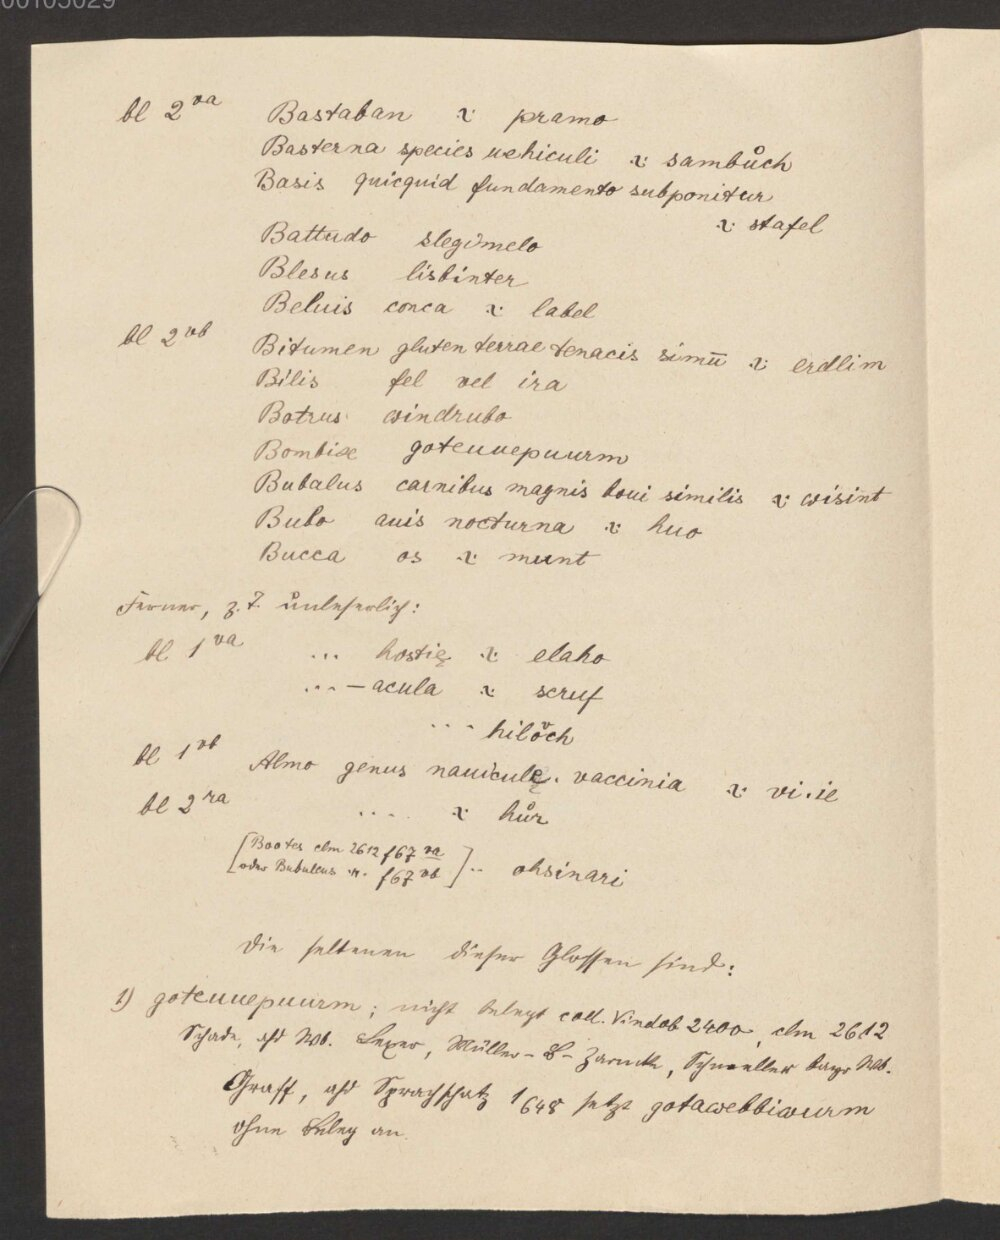 00105029
bl 2 va Bastaban x pramo
Basterna species uehiculi x sambůch
Basis quicquid fundamento subponitur
x stafel
Battudo slegimelo
Blesus lisbinter
Beluis conca x label
bl 2 vb Bitumen gluten terrae tenacis simū x erdlim
Bilis fel vel ira
Botrus windrubo
Bombix goteuuepuurm
Bubalus carnibus magnis boui similis x wisint
Bubo auis nocturna x huo
Bucca os x munt
Ferner, z. T. unleserlich:
bl 1 va ... hostię x elaho
...–acula x scruf
... hilǒch
bl 1 vb Almo genus nauiculę. vaccinia x vi.ie
bl 2 ra .... x hůr
[Bootes clm 2612 f67 va
oder Bubulcus n. f67 vb] .. ohsinari
Die seltenen dieser Glossen sind:
1) goteuuepuurm; nicht belegt cod. Vindob 2400, clm 2612
Schade, ahd Wb. Lexer, Müller-B-Zarncke, Schmeller bayr Wb.
Graff, ahd Sprachschatz 1 648 setzt gotawebbiwurm
ohne Beleg an.